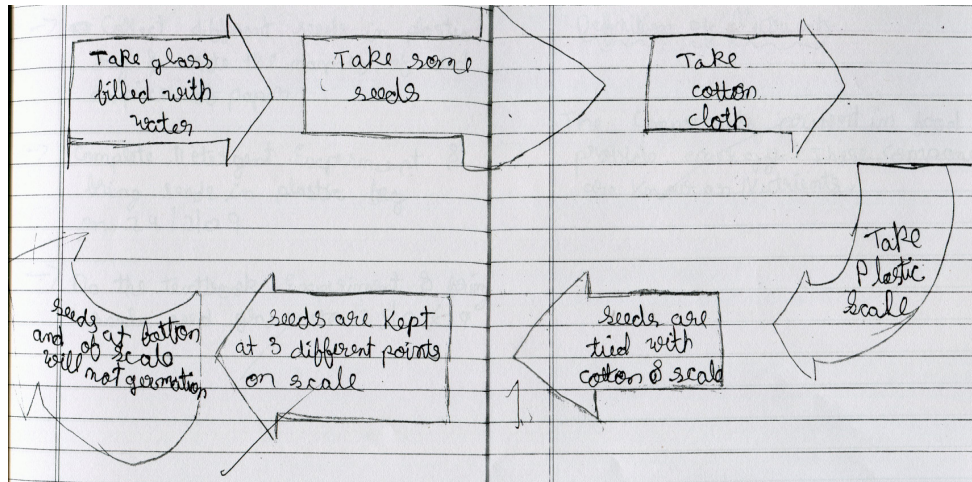 Take glass
filled with
water
Take some
seeds
Take
cotton
cloth
Take
Plastic
Scale
seeds are
tied with
cotton & scale
seeds are Kept
at 3 different points
on scale
seeds at botton
and of scale
will not germation